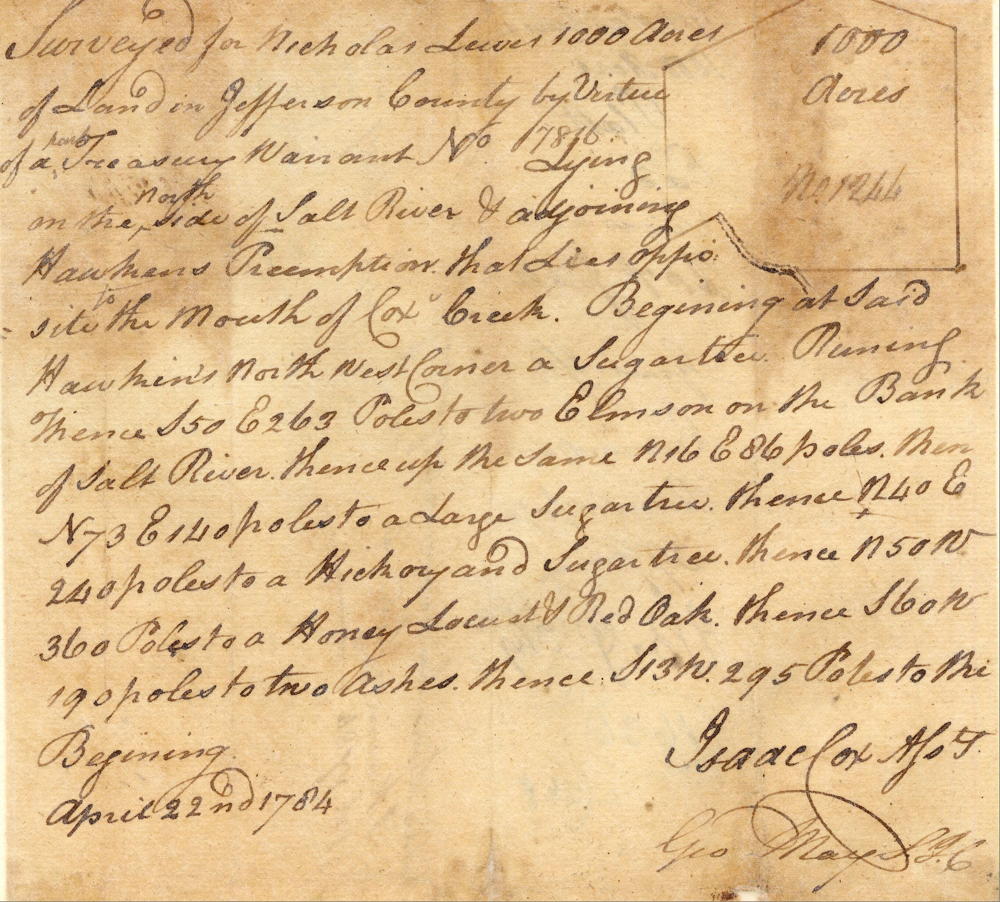 Surveyed for Nicholas Lewis 1000 Acres
of Land in Jefferson County by Virtue
of a part Treasury Warrant No 7816 Lying
on the North side of Salt River & adjoining
Hawkens Preemption that Lies oppo
site to the Mouth of Cox's Creek. Begining at Said
Hawkin's North West Corner a Sugartree Runing
Thence S50 E263 Poles to two Elms on on the Bank
of Salt River. thence up the Same N16 E86 poles. then
N73 E140 poles to a Large Sugartree. thence N40 E
240 poles to a Hickory and Sugartree. thence N50 W
360 Poles to a Honey Locust & Red Oak. thence S60 W
190 poles to two Ashes. thence S13 W. 295 Poles to the
Begining
April 22nd 1784
Isaac Cox Asst
Geo May SJC
1000
Acres
No. 1244